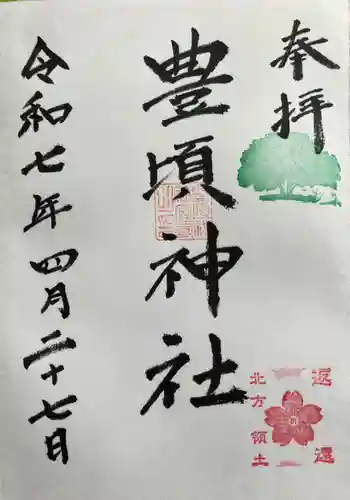 奉拝
豊頃神社
令和七年四月二十七日
返還
北方領土